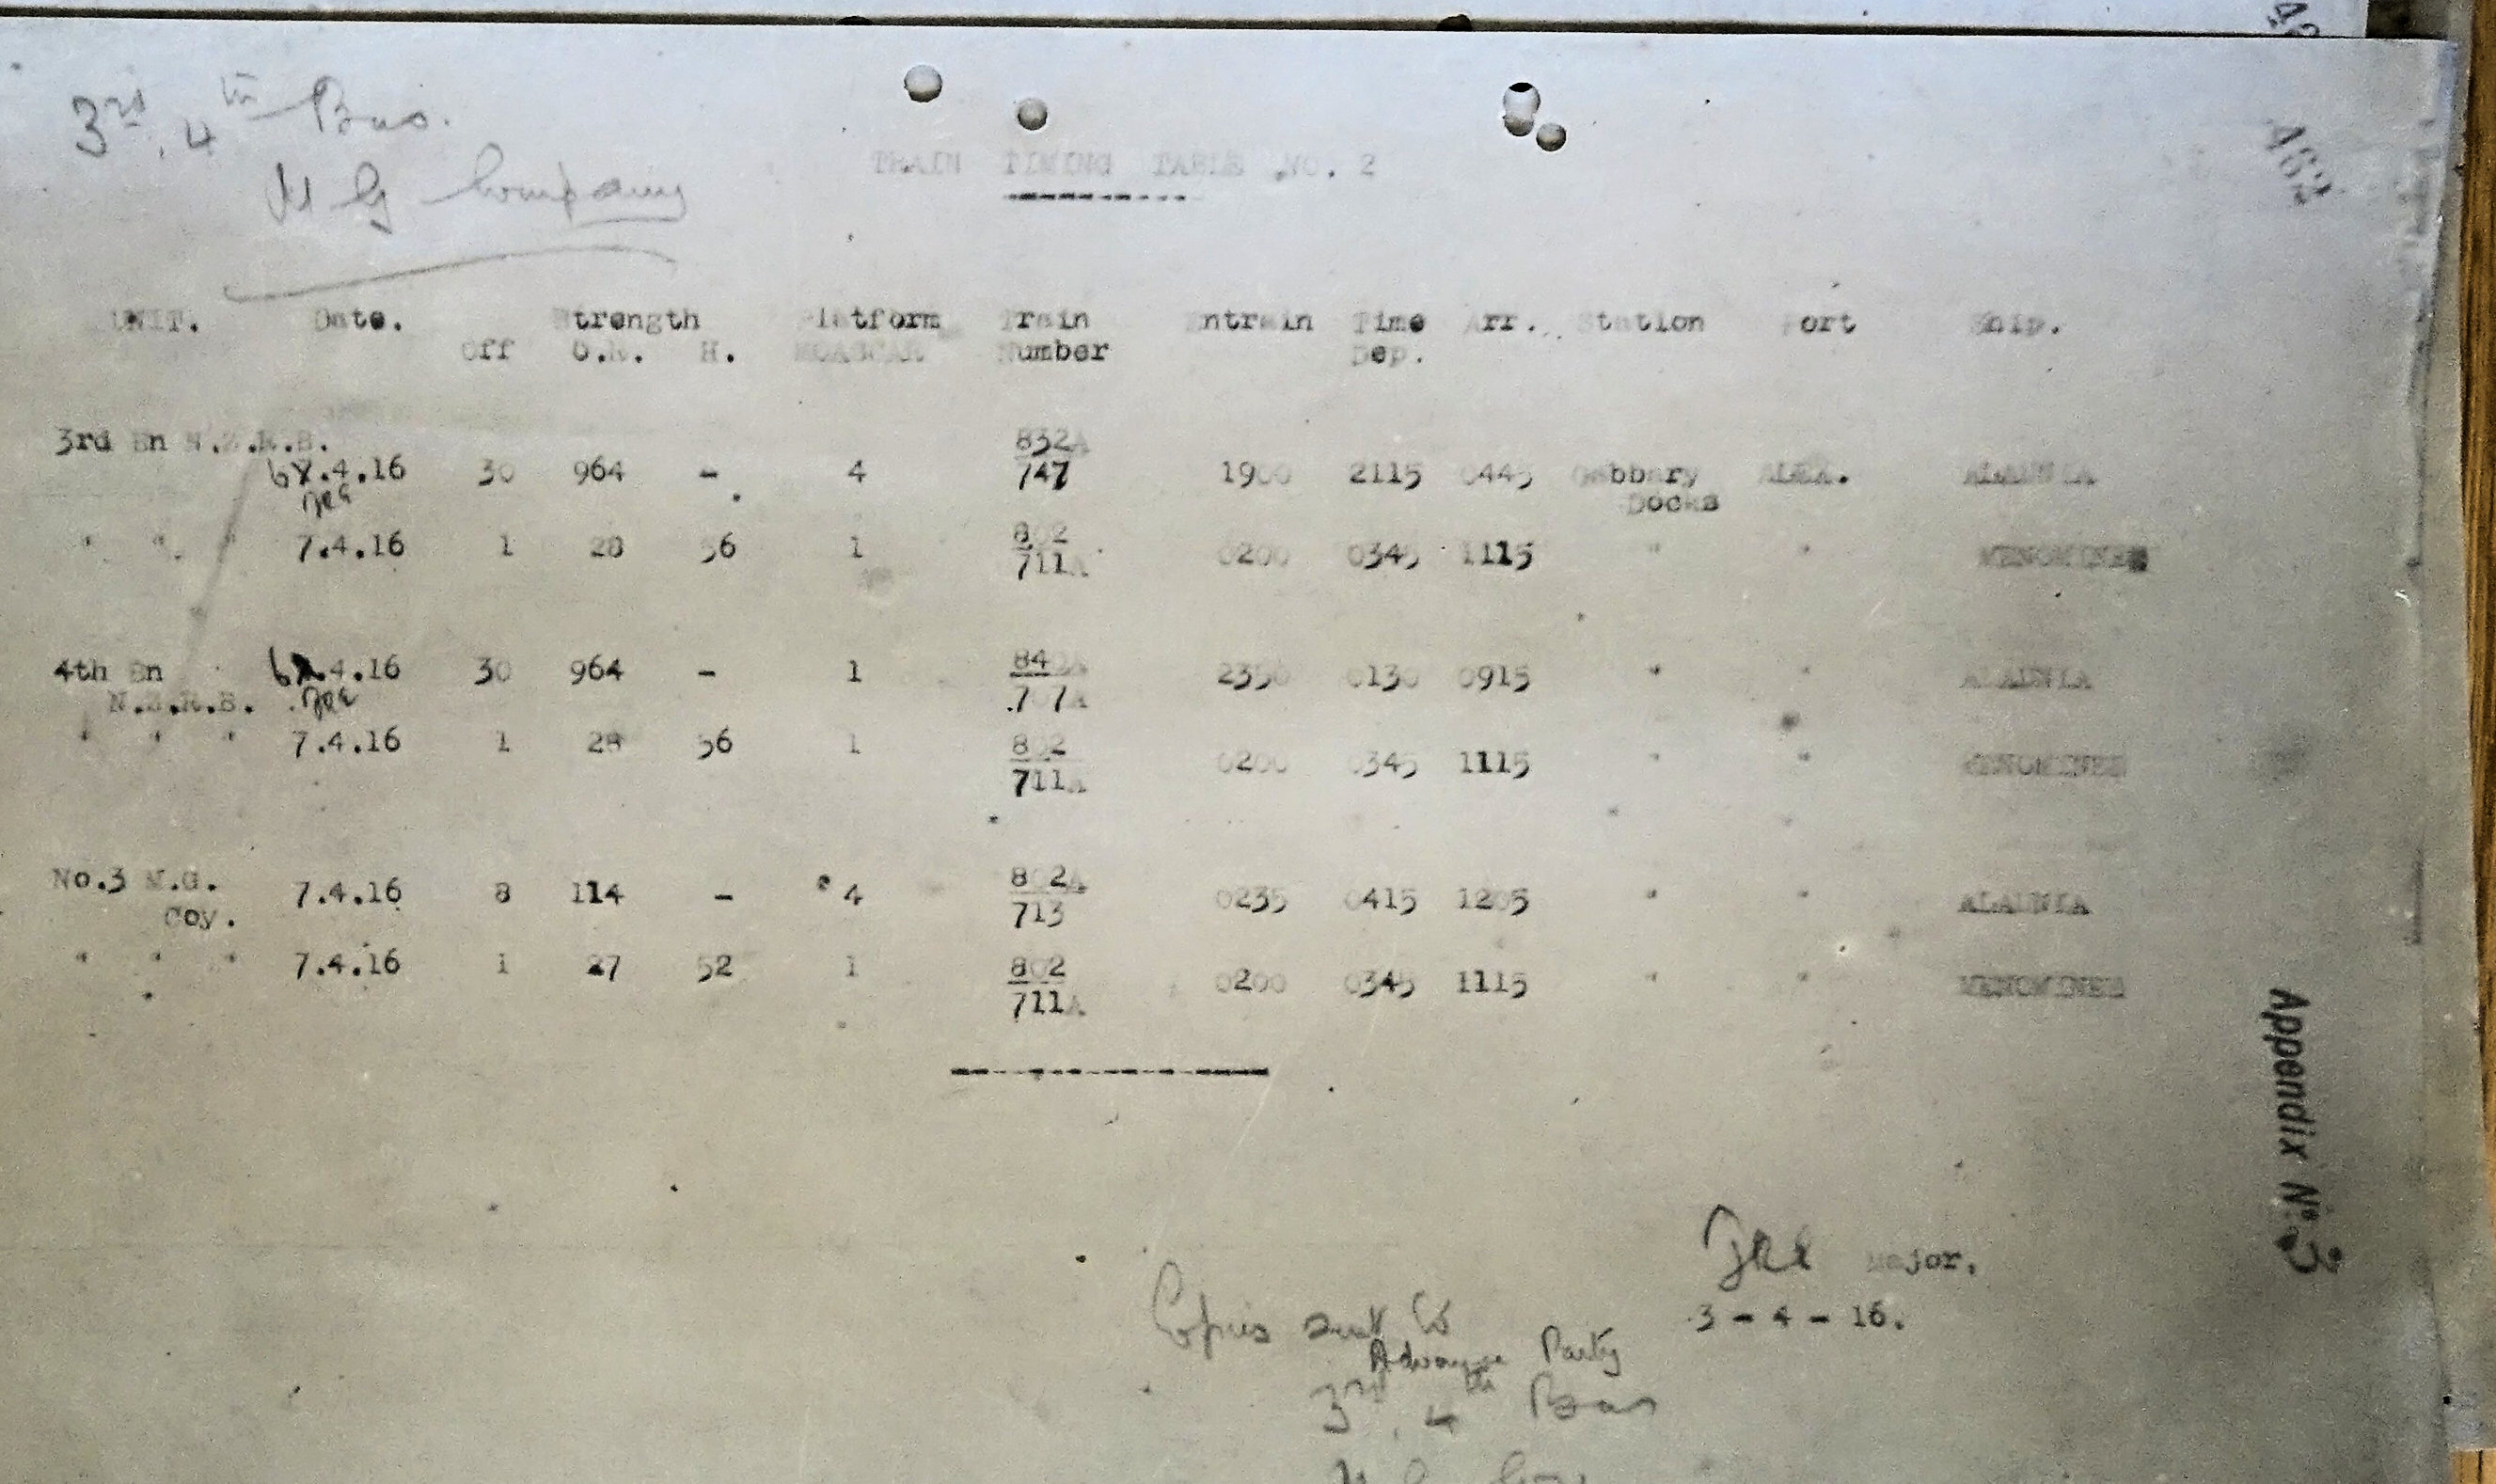 3rd, 4th Bns.
M G Company
TRAIN TIMING TABLE NO. 2
463
UNIT. Date. Strength Platform Train Entrain Time Arr. Station Port Ship.
Off O.R. H. MOASCAR Number Dep.
3rd Bn N.Z.R.B. 832A
6.4.16 30 964 - 4 747 1900 2115 0445 Gabbary ALEX. ALAUNIA
Docks
" " " 7.4.16 1 28 56 1 802/711A 0200 0345 1115 " " MENOMINEE
4th Bn 6.4.16 30 964 - 1 2350 0130 0915 " " ALAUNIA
N.Z.R.B.
" " " 7.4.16 1 28 56 1 802/711A 0200 0345 1115 " " MENOMINEE
No.3 M.G. 7.4.16 8 114 - 4 713 0235 0415 1205 " " ALAUNIA
Coy.
" " " 7.4.16 1 27 52 1 802/711A 0200 0345 1115 " " MENOMINEE
Appendix No. 3
Major.
3 - 4 - 16.
Copies sent to
Advance Party
3rd, 4th Bns